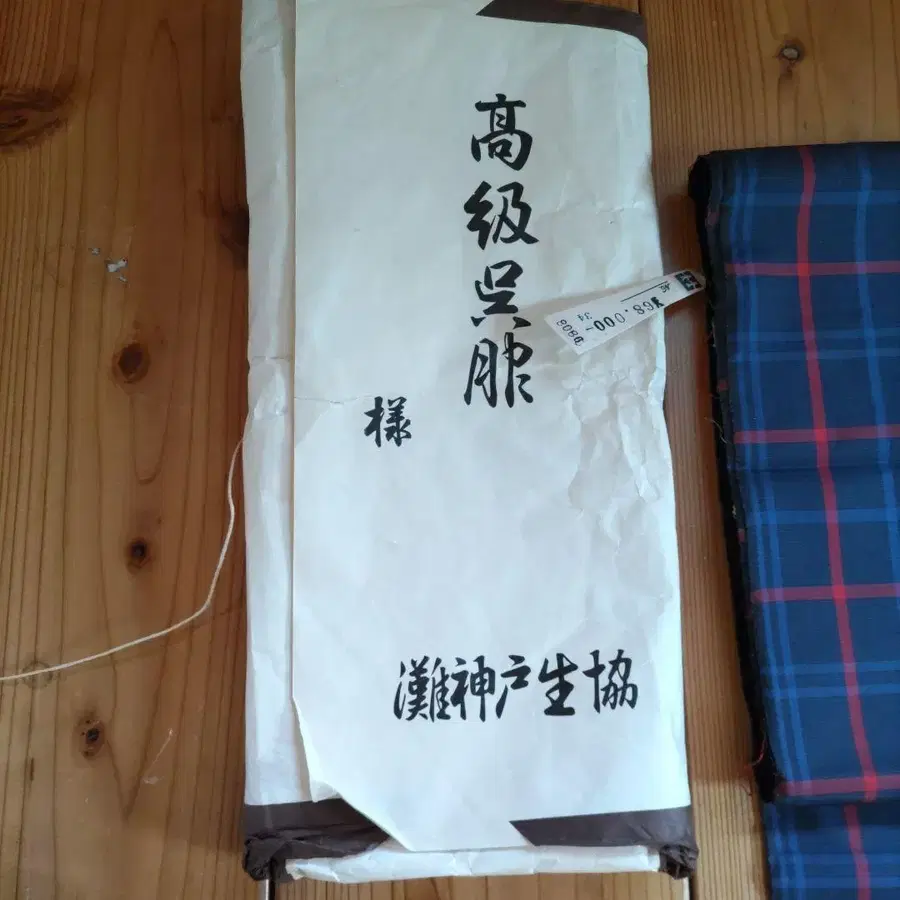 高級呉服
様
灘神戸生協
¥68.000-
34